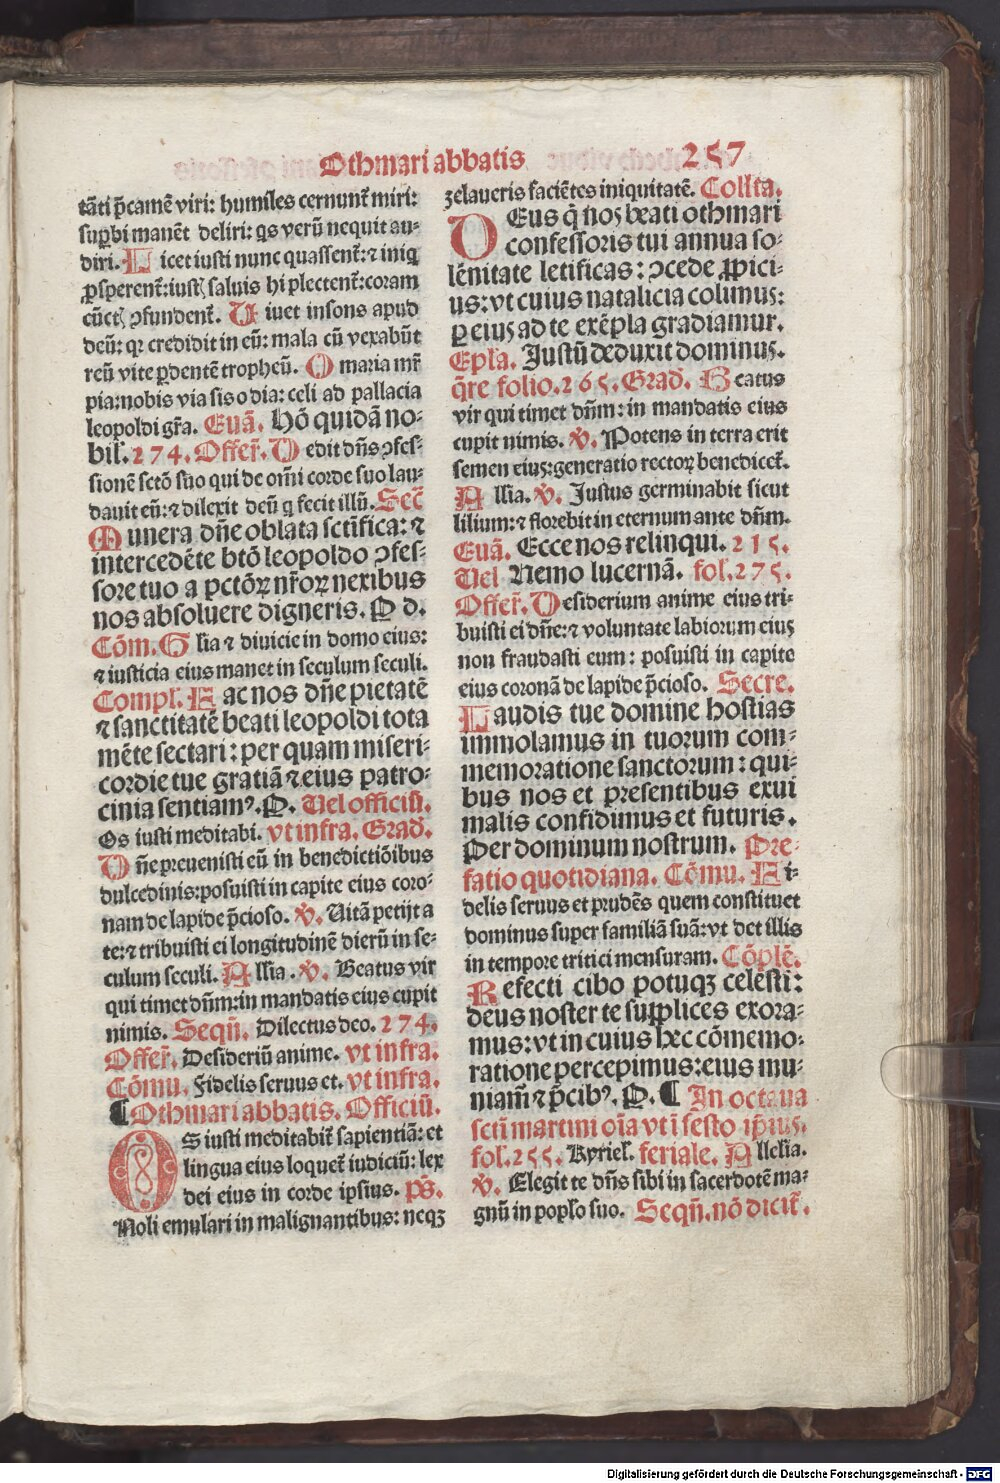 Othmari abbatis 257
tāti p̄camē viri: humiles cernunt̄ miri:
suꝑbi manēt deliri: qs verū nequit au-
diri. Licet iusti nunc quassent̄: ⁊ iniq
ꝓsperent̄: iusti saluis hi plectent̄: coram
cūctꝭ ↄfundent̄. Uiuet insons apud
deū: qꝛ credidit in eū: mala cū vexabūt
reū vite ꝑdentē tropheū. O maria mr̄
pia: nobis via sis o dia: celi ad pallacia
leopoldi gr̄a. Euā. Hō quidā no-
bil̄. 274. Offer̄. Dedit dn̄s ↄfes-
sionē sctō suo qui de om̄i corde suo lau-
dauit eū: ⁊ dilexit deū q fecit illū. Sec̄
Munera dn̄e oblata sctīfica: ⁊
intercedēte btō leopoldo ↄfes-
sore tuo a pctōꝝ nr̄oꝝ nexibus
nos absoluere digneris. P d.
Cōm. Glia ⁊ diuicie in domo eius:
⁊ iusticia eius manet in seculum seculi.
Compl̄. Fac nos dn̄e pietatē
⁊ sanctitatē beati leopoldi tota
mēte sectari: per quam miseri-
cordie tue gratiā ⁊ eius patro-
cinia sentiamꝰ. P. Uel officiū.
Os iusti meditabi. vt infra. Grad̄.
Dn̄e preuenisti eū in benedictiōibus
dulcedinis: posuisti in capite eius coro-
nam de lapide p̄cioso. v̄. Uitā petijt a
te: ⁊ tribuisti ei longitudinē dierū in se-
culum seculi. Allīa. v̄. Beatus vir
qui timet dn̄m: in mandatis eius cupit
nimis. Seqn̄. Dilectus deo. 274.
Offer̄. Desideriū anime. vt infra.
Cōmu. Fidelis seruus et. vt infra.
¶ Othmari abbatis. Officiū.
OS iusti meditabit̄ sapientiā: et
lingua eius loquet̄ iudiciū: lex
dei eius in corde ipsius. ps̄.
Noli emulari in malignantibus: neqꝫ
zelaueris faciētes iniquitatē. Collta.
DEus q̄ nos beati othmari
confessoris tui annua so-
lēnitate letificas: ↄcede ꝓpici-
us: vt cuius natalicia colimus:
ꝑ eius ad te exēpla gradiamur.
Epl̄a. Justū deduxit dominus.
q̄re folio. 265. Grad̄. Beatus
vir qui timet dn̄m: in mandatis eius
cupit nimis. v̄. Potens in terra erit
semen eius: generatio rectoꝝ benedicet̄.
Allīa. v̄. Justus germinabit sicut
lilium: ⁊ florebit in eternum ante dn̄m.
Euā. Ecce nos relinqui. 215.
Uel Nemo lucernā. fol. 275.
Offer̄. Desiderium anime eius tri-
buisti ei dn̄e: ⁊ voluntate labiorum eius
non fraudasti eum: posuisti in capite
eius coronā de lapide p̄cioso. Secre.
Laudis tue domine hostias
immolamus in tuorum com-
memoratione sanctorum: qui-
bus nos et presentibus exui
malis confidimus et futuris.
Per dominum nostrum. Pre-
fatio quotidiana. Cōmu. Fi-
delis seruus et prudēs quem constituet
dominus super familiā suā: vt det illis
in tempore tritici mensuram. Cōplē.
Refecti cibo potuqꝫ celesti:
deus noster te supplices exora-
mus: vt in cuius hec cōmemo-
ratione percepimus: eius mu-
niam̄ ⁊ p̄cibꝰ. P. ¶ In octaua
scti martini oīa vt ī festo ip̄ius.
fol. 255. Kyriel̄. feriale. Allelīa.
v̄. Elegit te dn̄s sibi in sacerdotē ma-
gnū in poplo suo. Seqn̄. nō dicit̄.
Digitalisierung gefördert durch die Deutsche Forschungsgemeinschaft - DFG